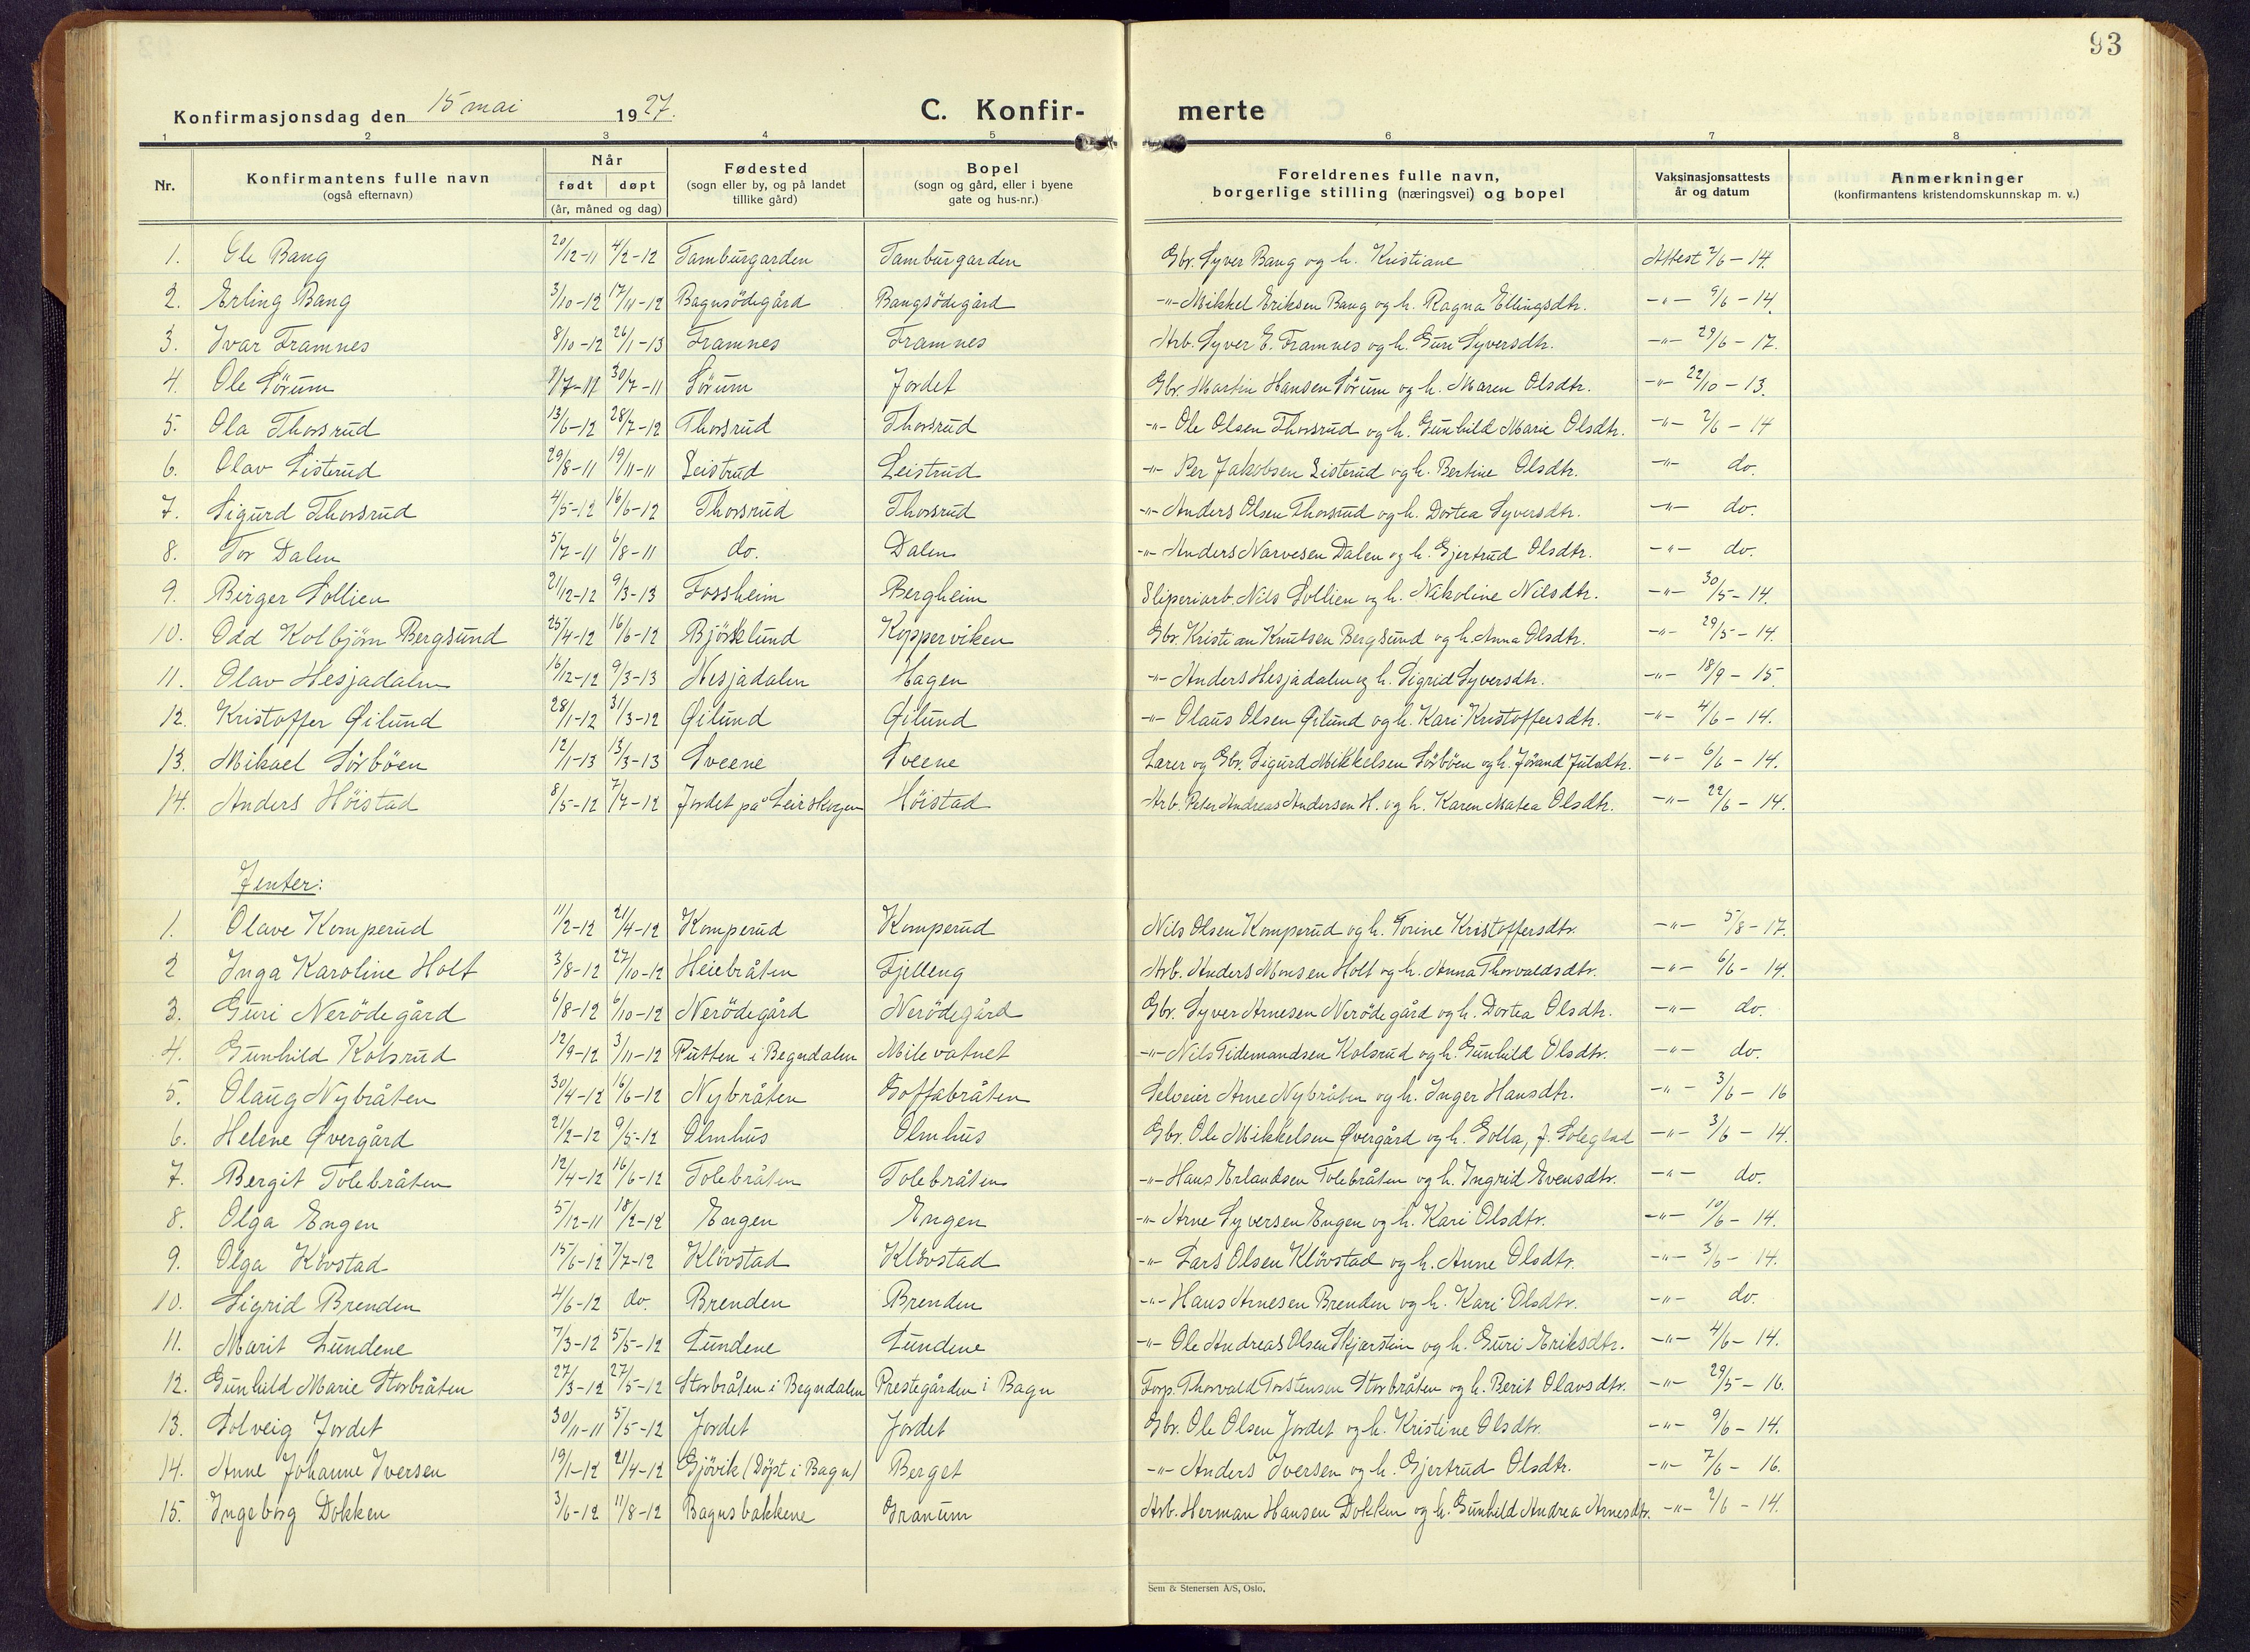 93
Konfirmasjonsdag den 15 mai 1927. C. Konfir- merte
1 2 3 4 5 6 7 8
Nr. Konfirmantens fulle navn (også efternavn) Når født døpt (år, måned og dag) Fødested (sogn eller by, og på landet tillike gård) Bopel (sogn og gård, eller i byene gate og hus-nr.) Foreldrenes fulle navn, borgerlige stilling (næringsvei) og bopel Vaksinasjonsattests år og datum Anmerkninger (konfirmantens kristendomskunnskap m. v.)
1. Ole Bang 20/12-11 4/2-12 Tamburgarden Tamburgarden Gbr. Syver Bang og h. Kristiane Attest 2/6-14.
2. Erling Bang 3/10-12 17/11-12 Bagnsödegård Bangsödegård -"- Mikkel Eriksen Bang og h. Ragna Ellingsdtr. -"- 9/6-14.
3. Ivar Framnes 8/10-12 26/1-13 Framnes Framnes Arb. Syver E. Framnes og h. Guri Syversdtr. -"- 29/6-17.
4. Ole Sörum 30/7-11 Sörum Jordet Gbr. Martin Hansen Sörum og h. Maren Olsdtr. -"- 22/10-13.
5. Ola Thorsrud 13/6-12 28/7-12 Thorsrud Thorsrud -"- Ole Olsen Thorsrud og h. Gunhild Marie Olsdtr. -"- 2/6-14
6. Olav Listerud 29/8-11 19/11-11 Leistrud Leistrud -"- Per Jakobsen Listerud og h. Bertine Olsdtr. -"- do.
7. Sigurd Thorsrud 4/5-12 16/6-12 Thorsrud Thorsrud -"- Anders Olsen Thorsrud og h. Dortea Syversdtr. -"- do.
8. Tor Dalen 5/7-11 6/8-11 do. Dalen -"- Anders Narvesen Dalen og h. Gjertrud Olsdtr. -"- do.
9. Birger Sollien 21/12-12 9/3-13 Fossheim Bergheim Sliperiarb. Nils Sollien og h. Nikoline Nilsdtr. -"- 30/5-14.
10. Odd Kolbjörn Bergsund 25/4-12 16/6-12 Björklund Kopperviken Gbr. Kristian Knutsen Bergsund og h. Anna Olsdtr. -"- 29/5-14.
11. Olav Hesjadalen 16/12-12 9/3-13 Hesjadalen Hagen -"- Anders Hesjadalen og h. Sigrid Syversdtr. -"- 18/9-15.
12. Kristoffer Øilund 28/1-12 31/3-12 Øilund Øilund -"- Olaus Olsen Øilund og h. Kari Kristoffersdtr. -"- 4/6-14.
13. Mikael Sörböen 12/1-13 13/3-13 Sveene Sveene Lærer og Gbr. Sigurd Mikkelsen Sörböen og h. Jörand Julsdtr. -"- 6/6-14.
14. Anders Höistad 8/5-12 7/7-12 Jordet på Leirskogen Höistad Arb. Peter Andreas Andersen H. og h. Karen Matea Olsdtr. -"- 22/6-14.
Jenter:
1. Olave Komperud 11/2-12 21/4-12 Komperud Komperud Nils Olsen Komperud og h. Torine Kristoffersdtr. -"- 5/8-17.
2 Inga Karoline Holt 3/8-12 27/10-12 Heiebråten Fjelleng Arb. Anders Monsen Holt og h. Anna Thorvaldsdtr. -"- 6/6-14.
3. Guri Nerödegård 6/8-12 6/10-12 Nerödegård Nerödegård Gbr. Syver Arnesen Nerödegård og h. Dortea Olsdtr. -"- do.
4. Gunhild Kolsrud 12/9-12 3/11-12 Putten i Begndalen Milevatnet -"- Nils Tidemandsen Kolsrud og h. Gunhild Olsdtr. -"- do.
5. Olaug Nybråten 30/4-12 16/6-12 Nybråten Goffabråten Selveier Arne Nybråten og h. Inger Hansdtr. -"- 3/6-16
6. Helene Øvergård 21/2-12 9/5-12 Olmhus Olmhus Gbr. Ole Mikkelsen Øvergård og h. Golla, f. Soleglad -"- 3/6-14.
7. Bergit Tolebråten 12/4-12 16/6-12 Tolebråten Tolebråten -"- Hans Erlandsen Tolebråten og h. Ingrid Evensdtr. -"- do.
8. Olga Engen 5/12-11 18/2-12 Engen Engen -"- Arne Syversen Engen og h. Kari Olsdtr. -"- 10/6-14.
9. Olga Kövstad 15/6-12 7/7-12 Klövstad Klövstad -"- Lars Olsen Klövstad og h. Anne Olsdtr. -"- 3/6-14.
10. Sigrid Brenden 4/6-12 do. Brenden Brenden -"- Hans Arnesen Brenden og h. Kari Olsdtr. -"- do.
11. Marit Lundene 7/3-12 5/5-12 Lundene Lundene -"- Ole Andreas Olsen Skjærstein og h. Guri Eriksdtr. -"- 4/6-14.
12. Gunhild Marie Storbråten 27/3-12 27/5-12 Storbråten i Begndalen Prestegården i Bagn Forp. Thorvald Torstensen Storbråten og h. Berit Olavsdtr. -"- 29/5-16.
13. Solveig Jordet 30/11-11 5/5-12 Jordet Jordet Gbr. Ole Olsen Jordet og h. Kristine Olsdtr. -"- 9/6-14.
14. Anne Johanne Iversen 19/1-12 21/4-12 Gjövik (Döpt i Bagn) Berget -"- Anders Iversen og h. Gjertrud Olsdtr. -"- 7/6-16.
15. Ingeborg Dokken 3/6-12 11/8-12 Bagnsbakkene Granum Arb. Herman Hansen Dokken og h. Gunhild Andrea Arnesdtr. -"- 2/6-14.
Sem & Stenersen A/S, Oslo.